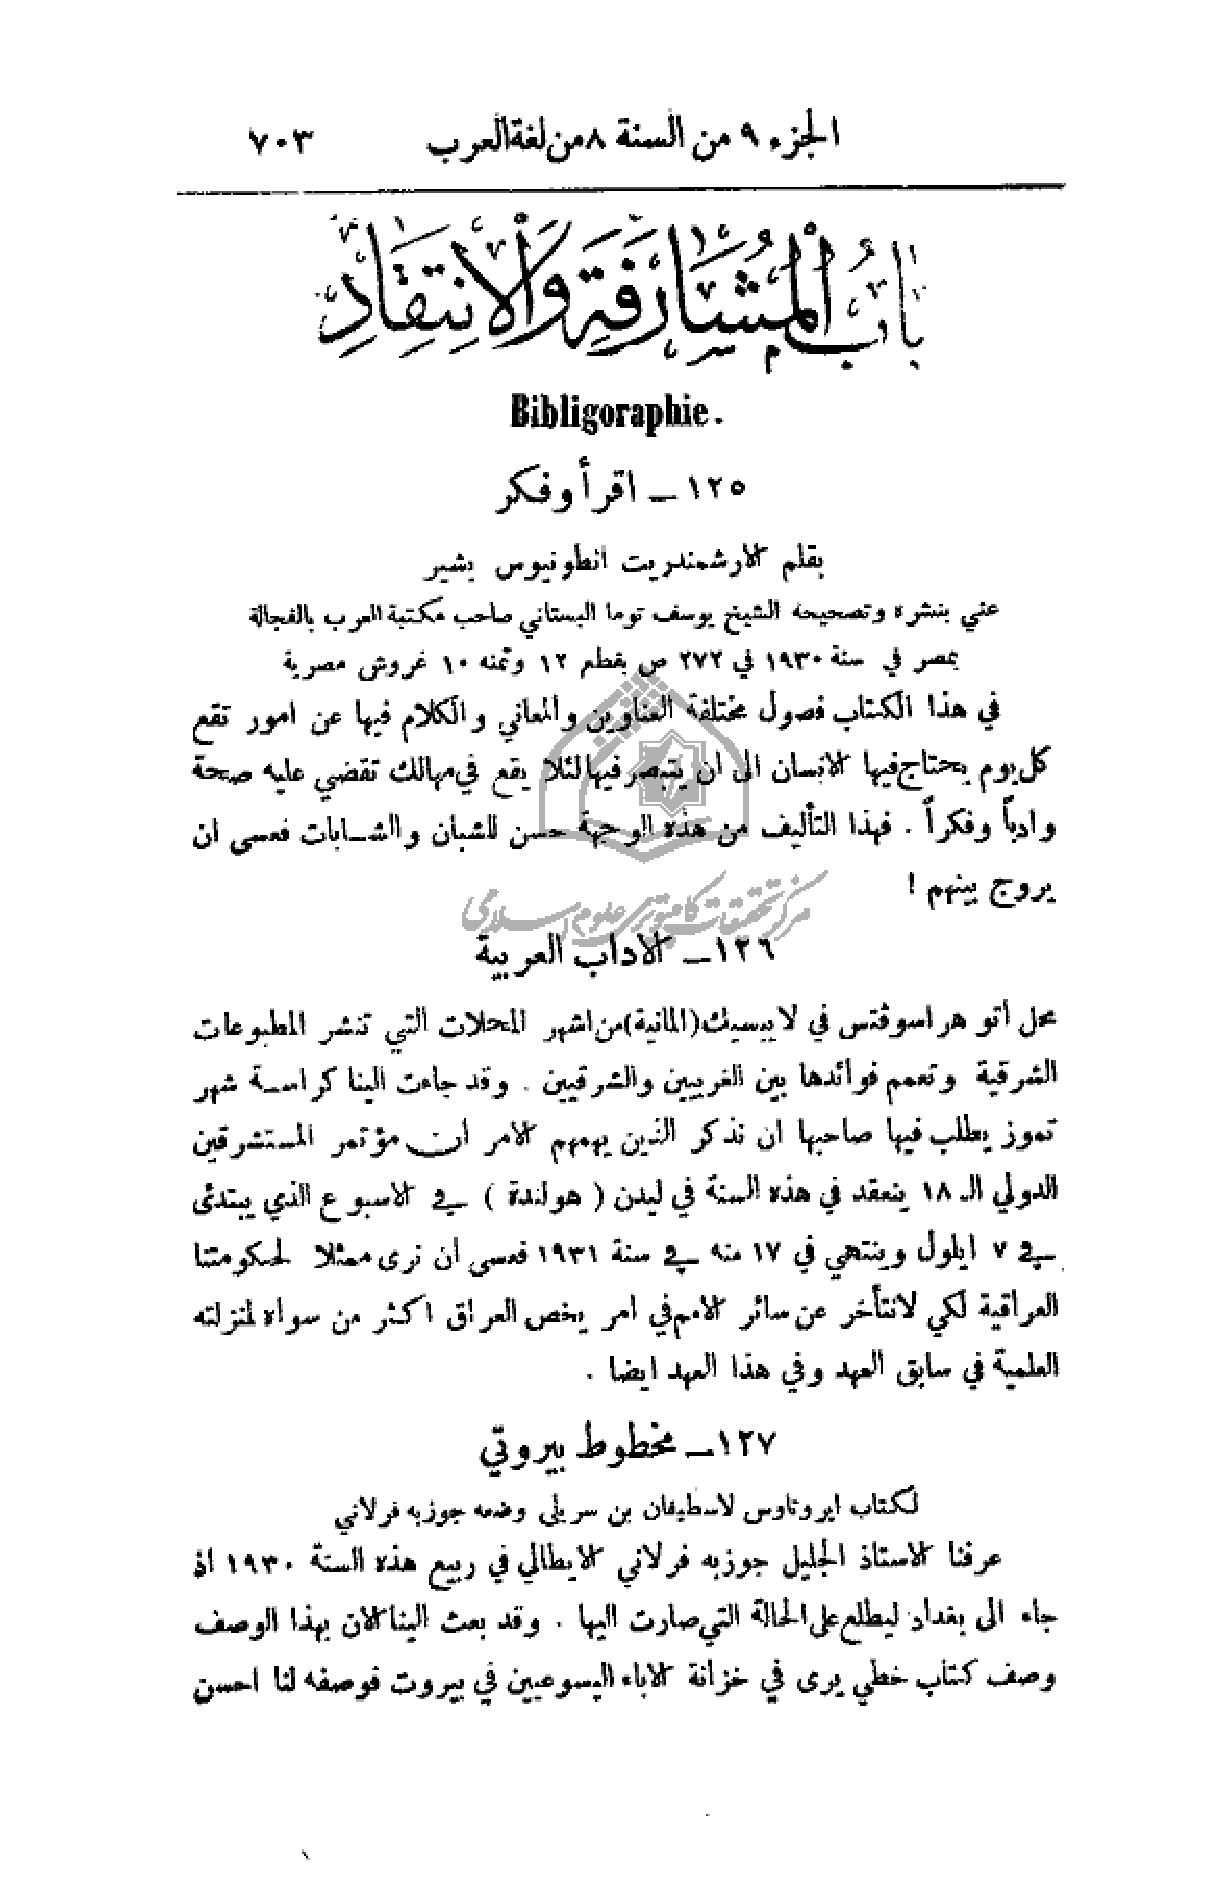 الجزء ٩ من السنة ٨ من لغة العرب ٧٠٣
بَابُ المُشَارَفَةِ وَالْاِنْتِقَادِ
Bibligoraphie.
١٢٥ ـ اقرأ وفكر
بقلم الارشمندريت انطونيوس بشير
عني بنشره وتصحيحه الشيخ يوسف توما البستاني صاحب مكتبة العرب بالفجالة
بمصر في سنة ١٩٣٠ في ٢٧٢ ص بقطع ١٢ وثمنه ١٠ غروش مصرية
في هذا الكتاب فصول مختلفة العناوين والمعاني والكلام فيها عن امور تقع
كل يوم يحتاج فيها الانسان الى ان يتبصر فيها لئلا يقع في مهالك تقضي عليه صحة
وادباً وفكراً . فهذا التأليف من هذه الوجهة حسن للشبان والشـابات فعسى ان
يروج بينهم !
مركز تحقيقات كامپيوتري علوم اسلامي
١٢٦ ـ الاداب العربية
محل أتو هراسوڤتس في لايبسيك (المانية) من اشهر المحلات التي تنشر المطبوعات
الشرقية وتعمم فوائدها بين الغربيين والشرقيين . وقد جاءت الينا كراسـة شهر
تموز يطلب فيها صاحبها ان نذكر الذين يهمهم الامر ان مؤتمر المستشرقين
الدولي الـ ١٨ ينعقد في هذه السنة في ليدن ( هولندة ) في الاسبوع الذي يبتدئ
في ٧ ايلول وينتهي في ١٧ منه في سنة ١٩٣١ فعسى ان نرى ممثلا لحكومتنا
العراقية لكي لانتأخر عن سائر الامم في امر يخص العراق اكثر من سواه لمنزلته
العلمية في سابق العهد وفي هذا العهد ايضا .
١٢٧ ـ مخطوط بيروتي
لكتاب ايروتاوس لاسطيفان بن سريلي وضعه جوزبه فرلاني
عرفنا الاستاذ الجليل جوزبه فرلاني الايطالي في ربيع هذه السنة ١٩٣٠ اذ
جاء الى بغداد ليطلع على الحالة التي صارت اليها . وقد بعث الينا الان بهذا الوصف
وصف كتاب خطي يرى في خزانة الاباء اليسوعيين في بيروت فوصفه لنا احسن